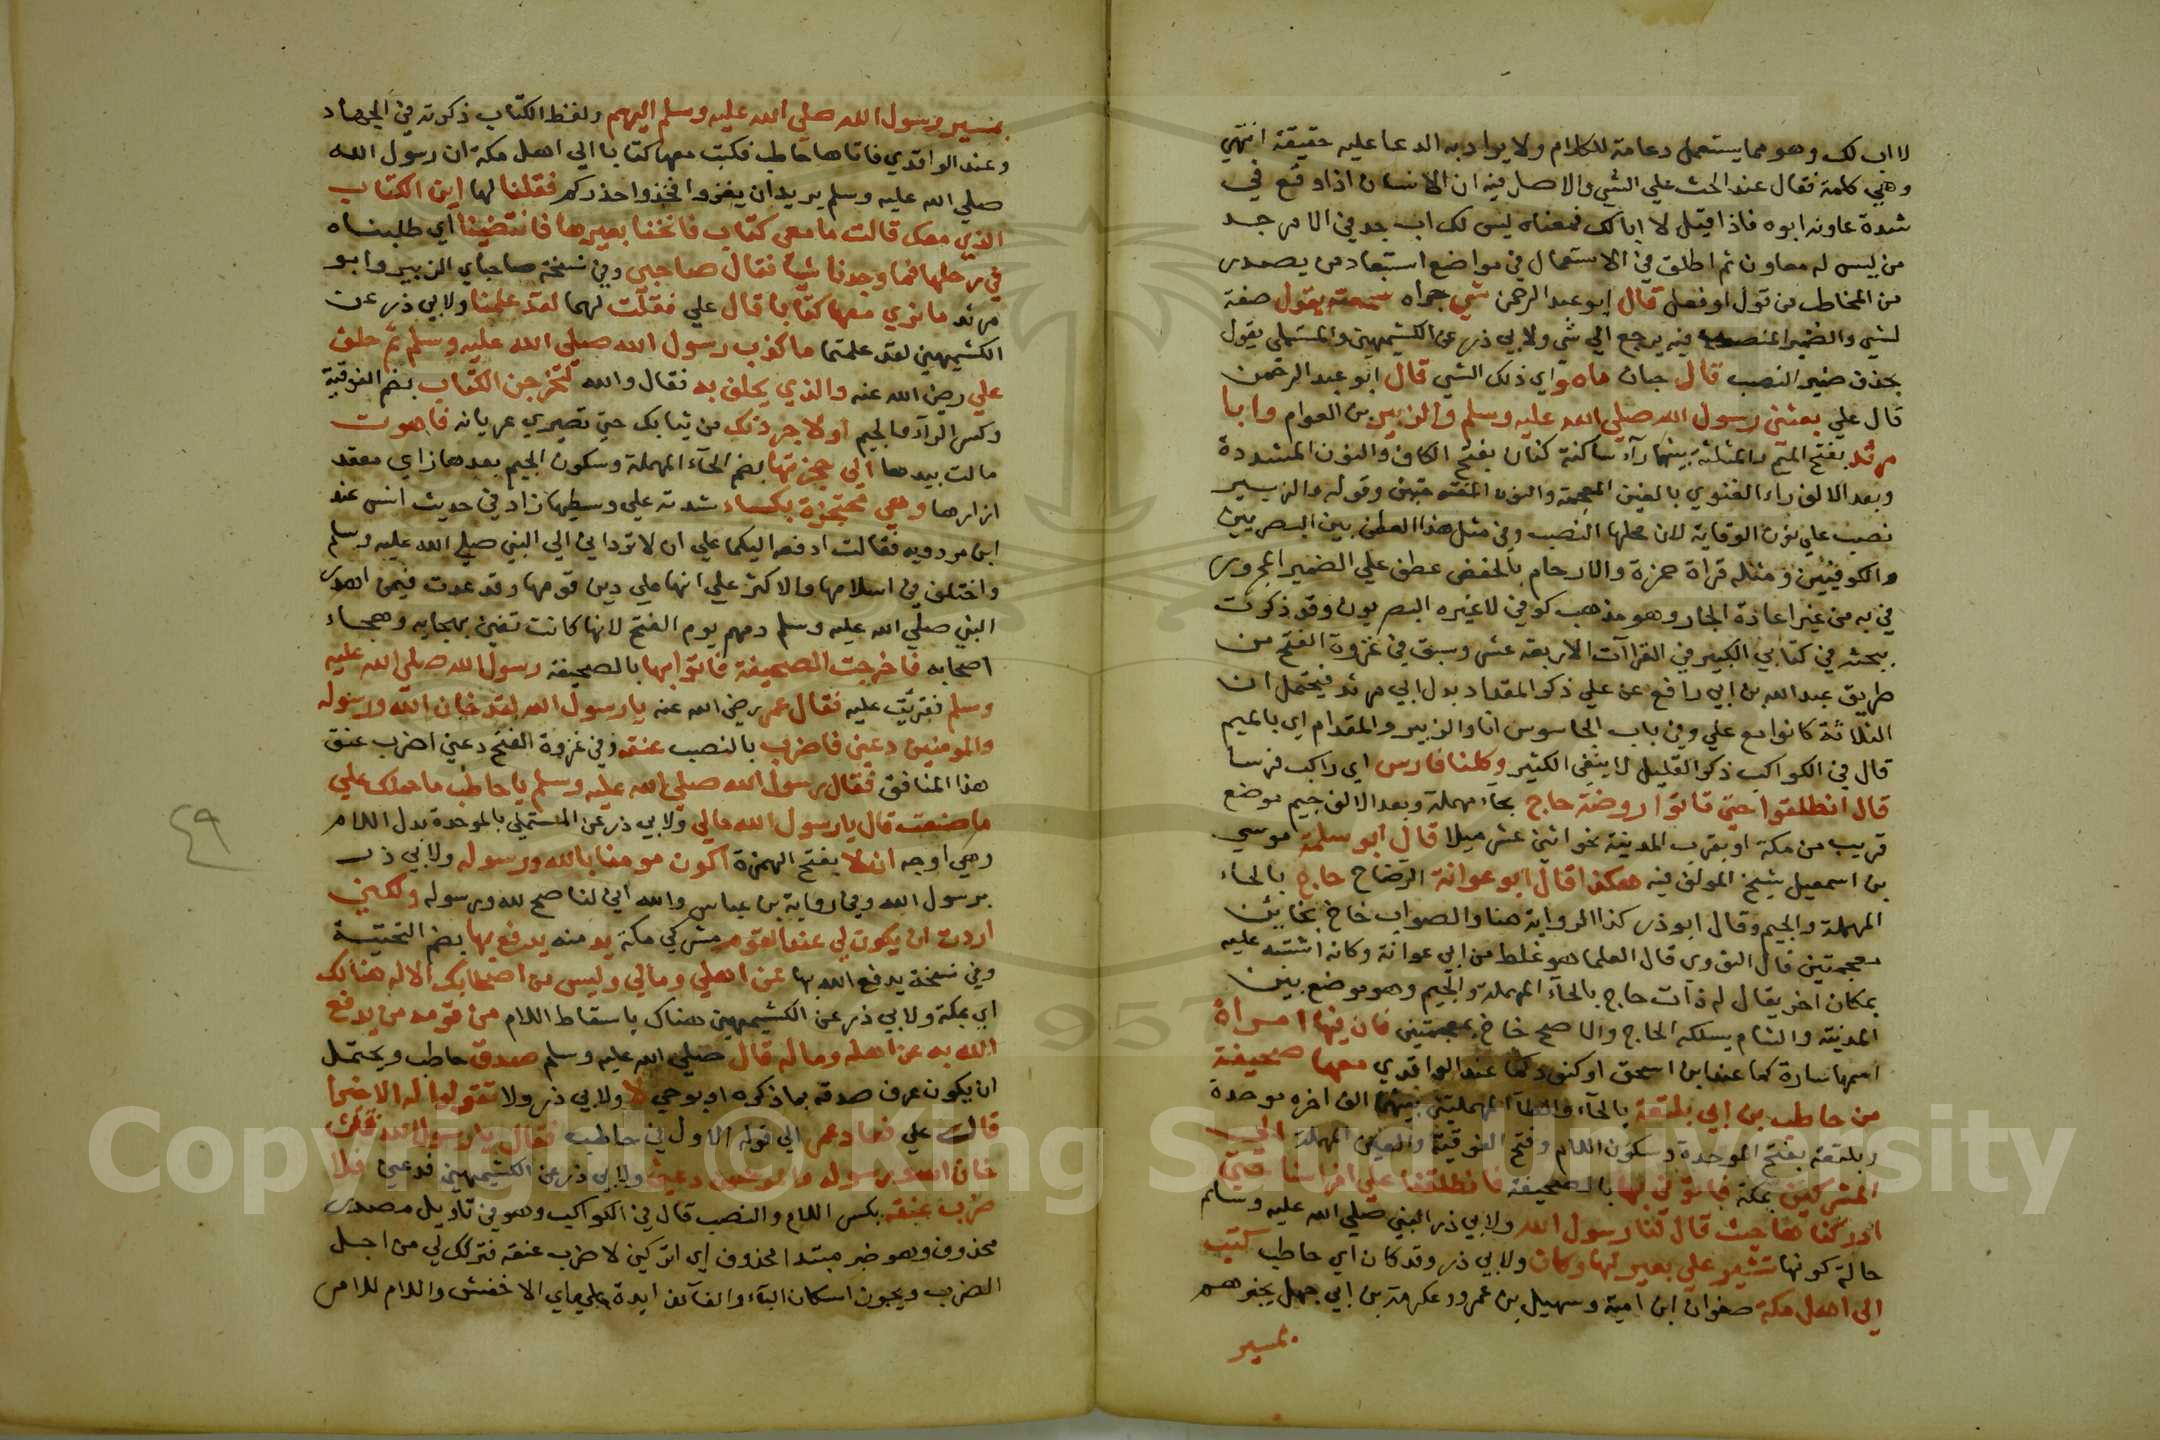 لا اب لك وهو مما يستعمل دعامة للكلام ولا يراد به الدعا عليه حقيقة انتهي
وهي كلمة تقال عند الحث علي الشي والاصل فيه ان الانسان اذا وقع في
شدة عاونه ابوه فاذا قيل لا ابالك فمعناه ليس لك اب جد في الامر جد
من ليس له معاون ثم اطلق في الاستعمال في مواضع استبعاد من يصدر
من المخاطب من قول او فعل قال ابو عبد الرحمن شي جراه سمعته يقول صفة
لشي والضمير المنصوب فيه يرجع الي شي ولابي ذر عن الكشميهني والمستملي يقول
بحذف ضمير النصب قال حبان ماهو اي ذلك الشي قال ابو عبد الرحمن
قال علي بعثني رسول الله صلي الله عليه وسلم والزبير بن العوام وابا
مرثد بفتح الميم والمثلثة بينهما رآء ساكنة كناز بفتح الكاف والنون المشددة
وبعد الالف زاء الغنوي بالغين المعجمة والنون المفتوحتين وقوله والزبير
نصب علي نون الوقاية لان محلها النصب وفي مثل هذا العطف بين البصريين
والكوفيين ومثله قراة حمزة والارحام بالخفض عطف علي الضمير المجرور
في به من غير اعادة الجار وهو مذهب كوفي لا غيره البصريون وقد ذكرت
بحثه في كتابي الكبير في القراآت الاربعة عشر وسبق في غزوة الفتح من
طريق عبد الله بن ابي رافع عن علي ذكر المقداد بدل ابي مرثد فيحتمل ان
الثلاثة كانوا مع علي وفي باب الجاسوس انا والزبير والمقدام اي بالميم
قال في الكواكب ذكر القليل لا ينفي الكثير وكلنا فارس اي راكب فرسا
قال انطلقوا حتي تاتوا روضة حاج بحاء مهملة وبعد الالف جيم موضع
قريب من مكة او بقرب المدينة نحو اثني عشر ميلا قال ابو سلمة موسي
بن اسمعيل شيخ المولف فيه هكذا قال ابو عوانة الوضاح حاج بالحاء
المهملة والجيم وقال ابو ذر كذا الرواية هنا والصواب خاخ بخاءين
معجمتين قال النووي قال العلما هو غلط من ابي عوانة وكانه اشتبه عليه
بمكان اخر يقال له ذات حاج بالحآء المهملة والجيم وهو موضع بين
المدينة والشام يسلكه الحاج والاصح خاخ بمعجمتين فان فيها امراة
اسمها سارة كما عند ابن اسحق او كنود كما عند الواقدي معها صحيفة
من حاطب بن ابي بلتعة بالحآء والطآ المهملتين بينهما الف اخره موحدة
وبلتعة بفتح الموحدة وسكون اللام وفتح الفوقية والعين المهملة الي
المشركين بمكة فاتوني بها بالصحيفة فانطلقنا علي افراسنا حتي
ادركناها حيث قال لنا رسول الله ولابي ذر النبي صلي الله عليه وسلم
حالة كونها تسير علي بعير لها وكان ولابي ذر وقد كان اي حاطب كتب
الي اهل مكة صفوان ابن امية وسهيل بن عمرو وعكرمة بن ابي جهل يخبرهم
بمسير
بمسير رسول الله صلي الله عليه وسلم اليهم ولفظ الكتاب ذكرته في الجهاد
وعند الواقدي فاتاها حاطب فكتب معها كتابا الي اهل مكة ان رسول الله
صلي الله عليه وسلم يريد ان يغزو فخذوا حذركم فقلنا لها اين الكتاب
الذي معك قالت ما معي كتاب فانخنا بعيرها فابتغينا اي طلبناه
في رحلها فما وجدنا شيا فقال صاحبي وفي نسخة صاحباي الزبير وابو
مرثد ما نري معها كتابا قال علي فقلت لهما لقد علمنا ولابي ذر عن
الكشميهني لقد علمتما ما كذب رسول الله صلي الله عليه وسلم ثم حلف
علي رضي الله عنه والذي يحلف به فقال والله لتخرجن الكتاب بضم الفوقية
وكسر الرآء والجيم او لاجردنك من ثيابك حتي تصيري عريانه فاهوت
مالت بيدها الي حجزتها بضم الحآء المهملة وسكون الجيم بعدها زاي معقد
ازارها وهي محتجزة بكساء شدته علي وسطها زاد في حديث انس عند
ابن مردويه فقالت ادفعه اليكما علي ان لا ترداني الي النبي صلي الله عليه وسلم
واختلف في اسلامها والاكثر علي انها علي دين قومها وقد عدت فيمن اهدر
النبي صلي الله عليه وسلم دمهم يوم الفتح لانها كانت تغني بهجايه وهجاء
اصحابه فاخرجت الصحيفة فاتوا بها بالصحيفة رسول الله صلي الله عليه
وسلم فقريت عليه فقال عمر رضي الله عنه يارسول الله لقد خان الله ورسوله
والمومنين دعني فاضرب بالنصب عنقه وفي غزوة الفتح دعني اضرب عنق
هذا المنافق فقال رسول الله صلي الله عليه وسلم يا حاطب ما حملك علي
ما صنعت قال يارسول الله مالي ولابي ذر عن المستملي بالموحدة بدل اللام
وهي اوجه ان لا بفتح الهمزة اكون مومنا بالله ورسوله ولابي ذر
برسول الله وفي رواية بن عباس والله اني لناصح لله ورسوله ولكني
اردت ان يكون لي عند القوم مشركي مكة يد منه يدفع بها بضم التحتية
وفي نسخة يدفع الله بها عن اهلي ومالي وليس من اصحابك الا له هنالك
اي بمكة ولابي ذر عن الكشميهني هناك باسقاط اللام من قومه من يدفع
الله به عن اهله وماله قال صلي الله عليه وسلم صدق حاطب ويحتمل
ان يكون عرف صدقه بما ذكره او بوحي لا ولابي ذر ولا تقولوا له الا خيرا
قال علي فعاد عمر الي قوله الاول في حاطب فقال يارسول الله قد
خان الله ورسوله والمومنين دعني ولابي ذر عن الكشميهني فدعني فلا
ضرب عنقه بكسر اللام والنصب قال في الكواكب وهو في تاويل مصدر
محذوف وهو خبر مبتدا محذوف اي اتركني لاضرب عنقه فتركك لي من اجل
الضرب ويجوز اسكان البآء والفآء زايدة علي راي الاخفش واللام للامر
٤٩
Copyright © King Saud University
957